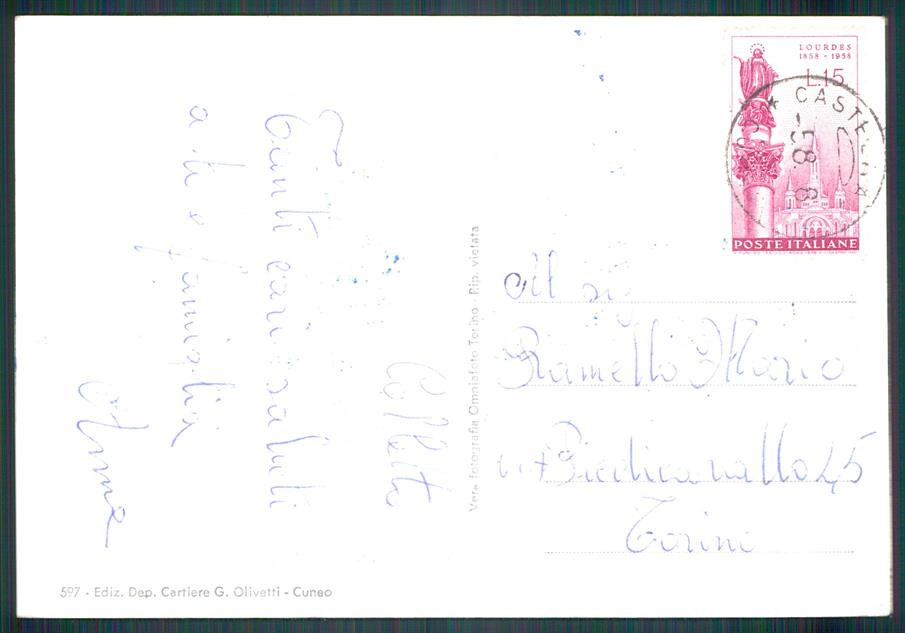 Tanti cari saluti
a te e famiglia
Anna
LOURDES
1858 - 1958
L.15
POSTE ITALIANE
5 8
Vera fotografia Omniafoto Torino - Rip. vietata
Al sig
Ramello Mario
Torino
597 - Ediz. Dep. Cartiere G. Olivetti - Cuneo